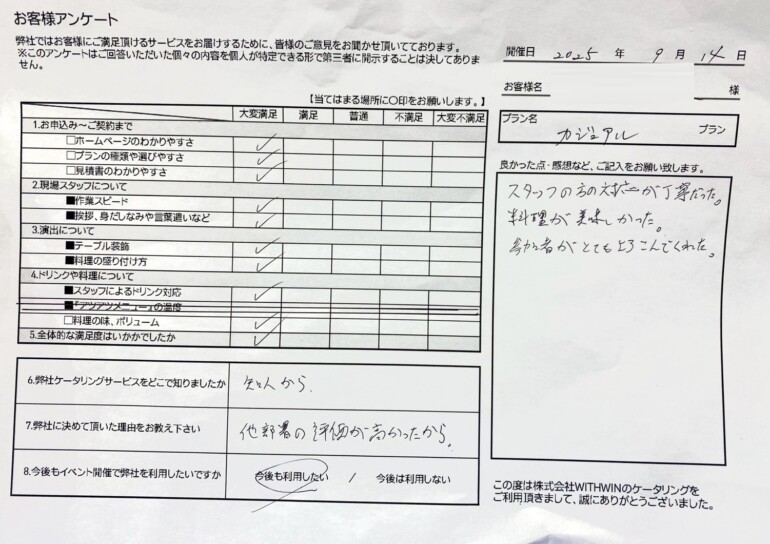 お客様アンケート
弊社ではお客様にご満足頂けるサービスをお届けするために、皆様のご意見をお聞かせ頂いてております。
※このアンケートはご回答いただいた個々の内容を個人が特定できる形で第三者に開示することは決してありま
せん。
開催日 2025 年 9 月 14 日
お客様名 様
プラン名 カジュアル プラン
【当てはまる場所に〇印をお願いします。】
大変満足 満足 普通 不満足 大変不満足
1.お申込み～ご契約まで
□ホームページのわかりやすさ ✓
□プランの種類や選びやすさ ✓
□見積書のわかりやすさ ✓
2.現場スタッフについて
■作業スピード ✓
■挨拶、身だしなみや言葉遣いなど ✓
3.演出について
■テーブル装飾 ✓
■料理の盛り付け方 ✓
4.ドリンクや料理について
■スタッフによるドリンク対応 ✓
■「アツアツメニュー」の温度
□料理の味、ボリューム ✓
5.全体的な満足度はいかがでしたか ✓
6.弊社ケータリングサービスをどこで知りましたか 知人から、
7.弊社に決めて頂いた理由をお教え下さい 他部署の評価が高かったから。
8.今後もイベント開催で弊社を利用したいですか 今後も利用したい / 今後は利用しない
良かった点・感想など、ご記入をお願い致します。
スタッフの方の対応が丁寧だった。
料理が美味しかった。
参加者がとてもよろこんでくれた。
この度は株式会社WITHWINのケータリングを
ご利用頂きまして、誠にありがとうございました。